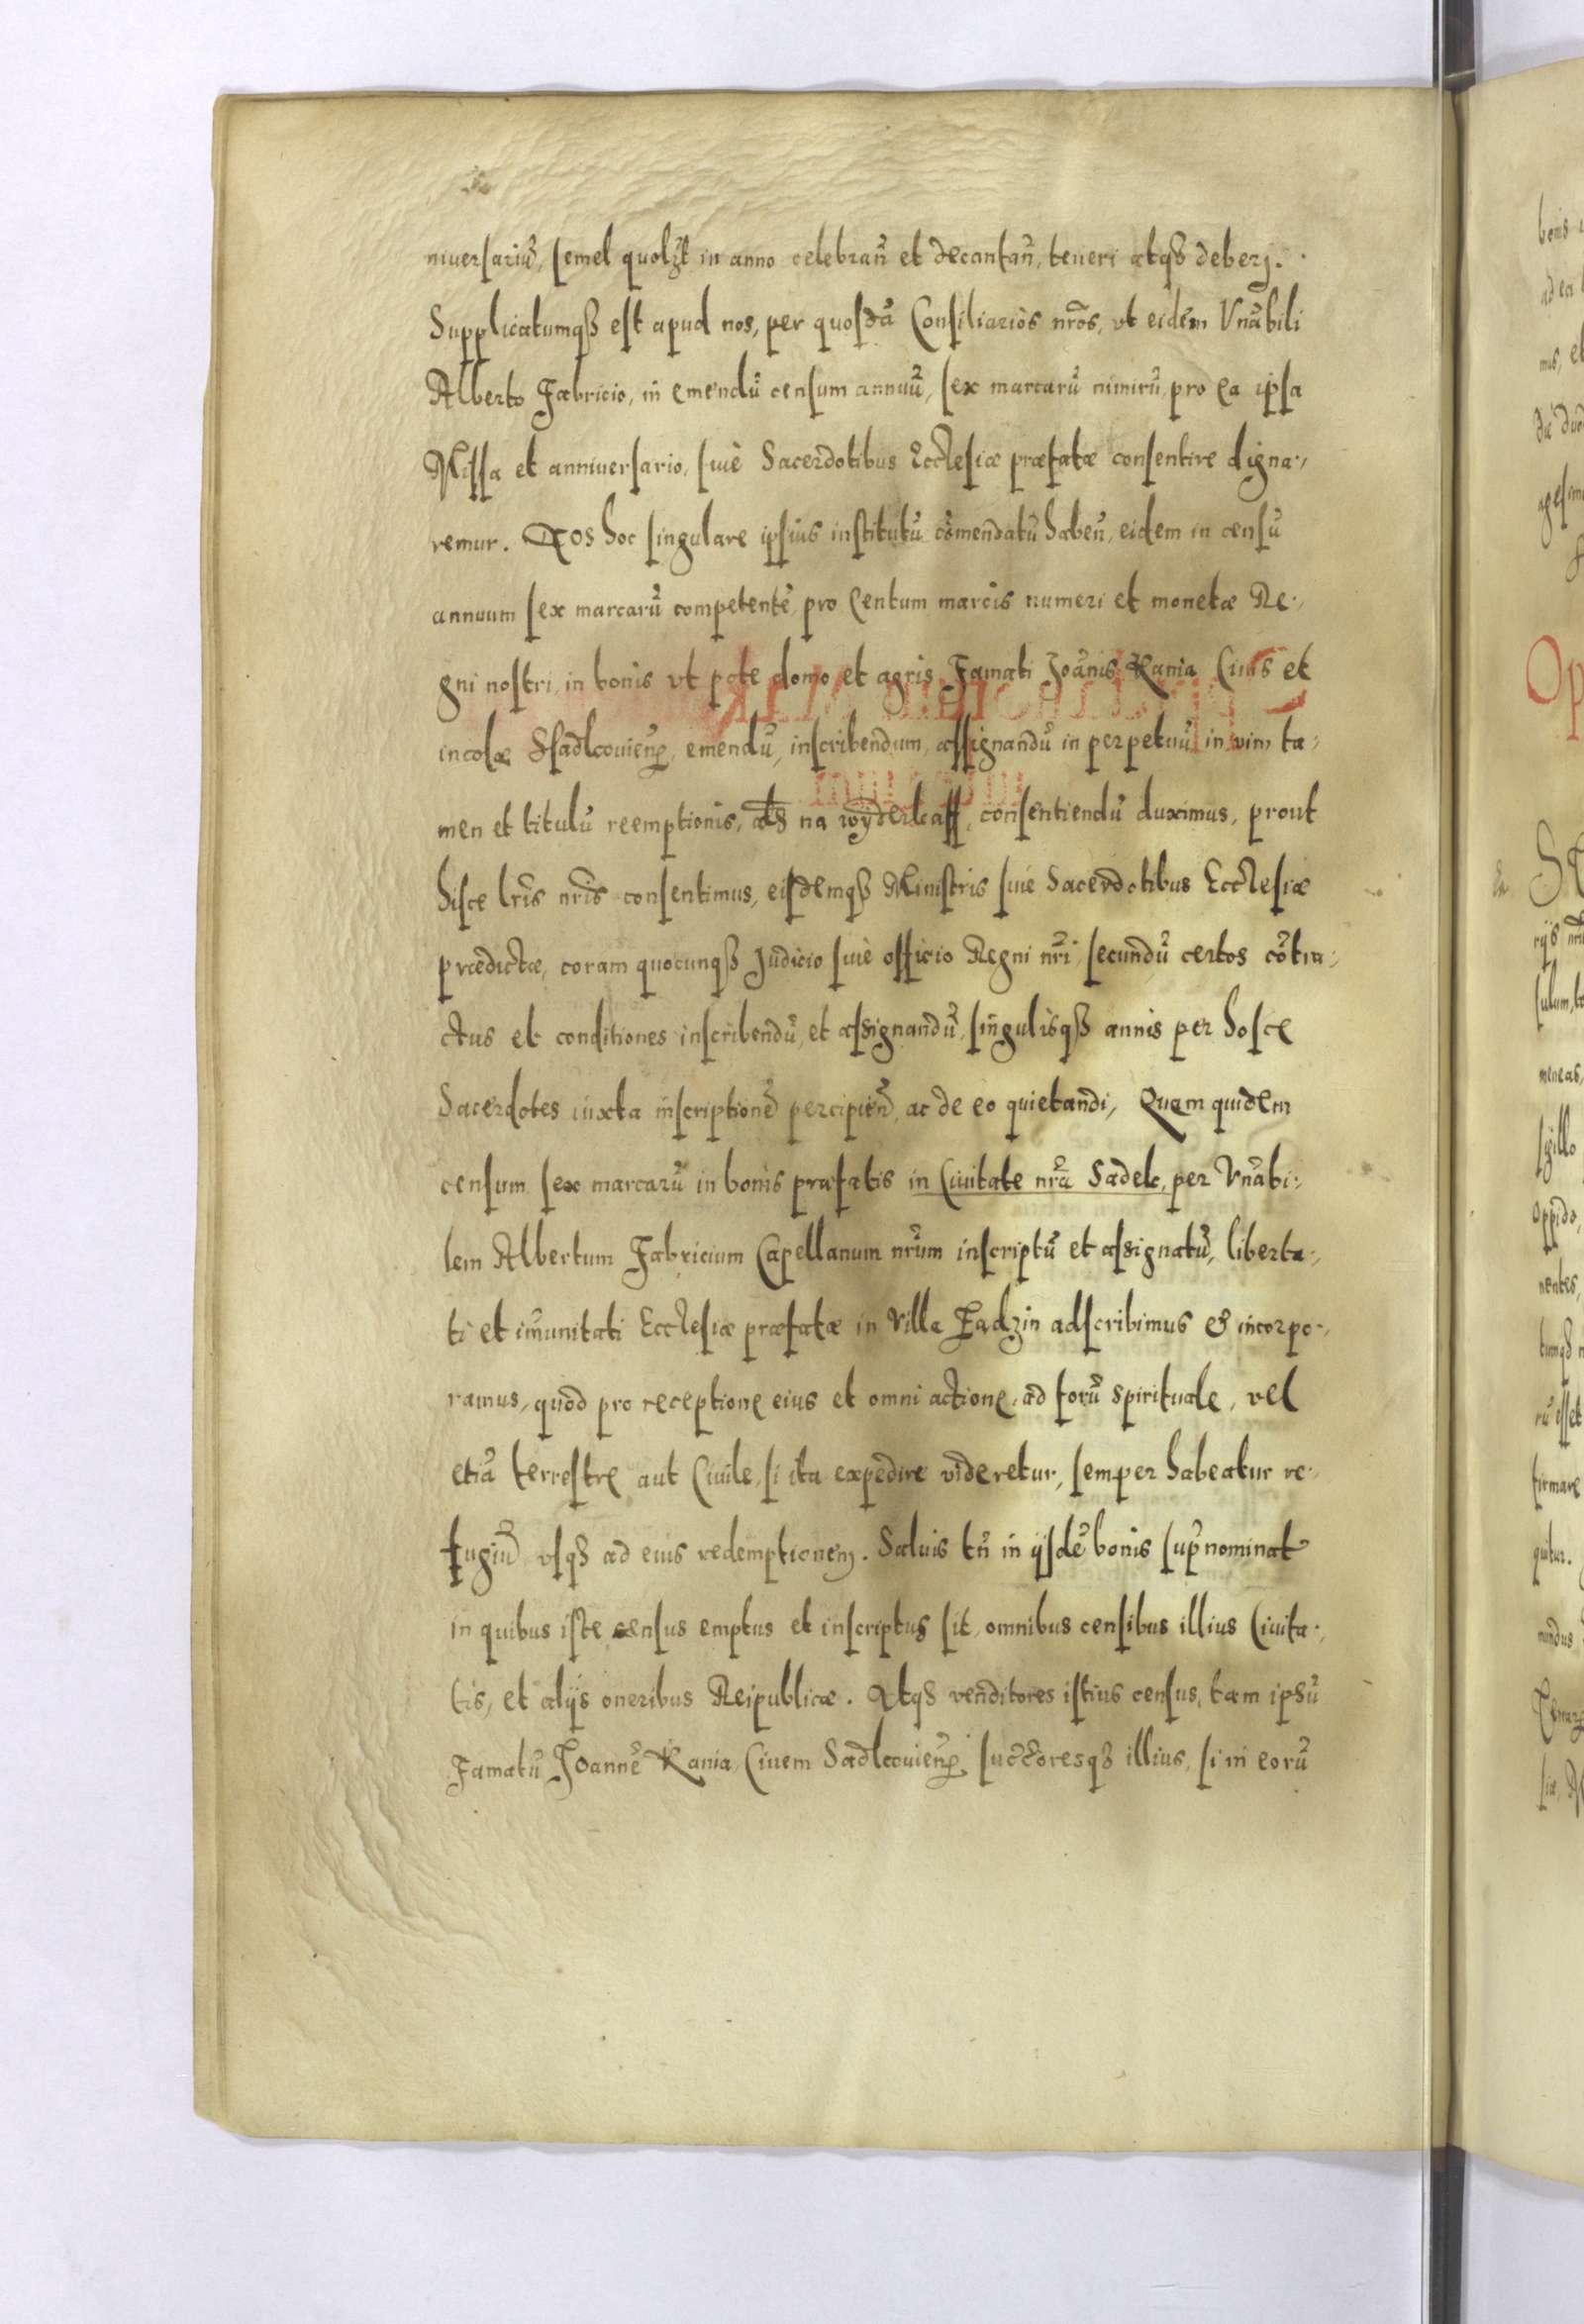 niuersariũ, semel quolzt in anno celebran̄ et decantan̄, teneri atqȝ deberj.
Supplicatumqȝ est apud nos, per quosdã Consiliarios nr̃os, vt eidem Vnãbili
Alberto Fabricio, in emendũ censum annuũ, sex marcarũ nimirũ, pro ea ipsa
Missa et anniuersario, siuè Sacerdotibus Eccl̃esiæ præfatæ consentire digna-
remur. Nos hoc singulare ipsius institutũ cõmendatũ haben̄, eidem in censũ
annuum sex marcarũ competentẽ, pro Centum marcis numeri et monetæ Re-
gni nostri, in bonis vt pote domo et agris Famati Joãnis Kania Ciuis et
incolæ Ssadkouien̄, emendũ, inscribendum, assignandũ in perpetuũ, in vim ta-
men et titulũ reemptionis, als na wyderkaff, consentiendũ duximus, prout
hisce lr̃is nr̃is consentimus, eisdemqȝ Ministris siuè Sacerdotibus Eccl̃esiæ
prædictæ, coram quocunqȝ Judicio siuè officio Regni nr̃i, secundũ certos cõtra-
ctus et conditiones inscribendũ, et assignandũ, singulisqȝ annis per hosce
Sacerdotes iuxta inscriptionẽ percipien̄, ac de eo quietandi, Quem quidem
censum sex marcarũ in bonis præfatis in Ciuitate nr̃a Sadek, per Vnãbi-
lem Albertum Fabricium Capellanum nr̃um inscriptũ et assignatũ, liberta-
ti et im̃unitati Eccl̃esiæ præfatæ in Villa Radzin adscribimus et incorpo-
ramus, quod pro receptione eius et omni actione, ad forũ spirituale, vel
etiã terrestre aut Ciuile, si ita expedire videretur, semper habeatur re-
fugiũ vsqȝ ad eius redemptionem. Saluis tn̄ in ijsdẽ bonis sup̃nominat
in quibus iste census emptus et inscriptus sit, omnibus censibus illius Ciuita-
tis, et alijs oneribus Reipublicæ. Atqȝ venditores istius census, tam ipsũ
Famatũ Joannẽ Kania, Ciuem Sadkouien̄, succ̃oresqȝ illius, si in eorũ